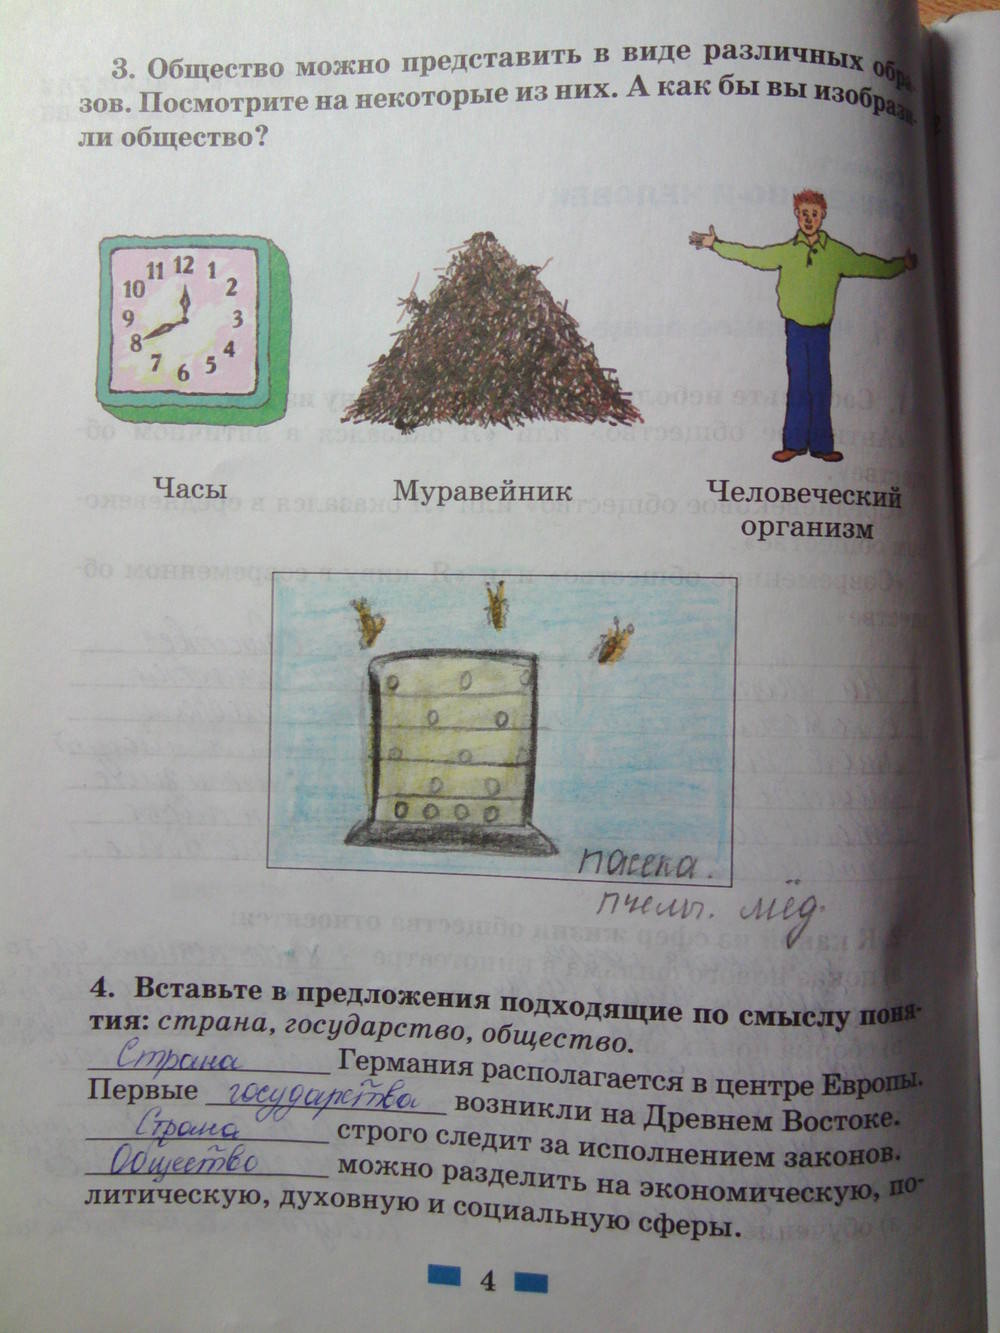 3. Общество можно представить в виде различных обра-
зов. Посмотрите на некоторые из них. А как бы вы изобрази-
ли общество?
11 12 1
10 2
9 3
8 4
7 6 5
Часы
Муравейник
Человеческий
организм
пасека.
пчелы. мёд.
4. Вставьте в предложения подходящие по смыслу поня-
тия: страна, государство, общество.
Страна Германия располагается в центре Европы.
Первые государства возникли на Древнем Востоке.
Страна строго следит за исполнением законов.
Общество можно разделить на экономическую, по-
литическую, духовную и социальную сферы.
4